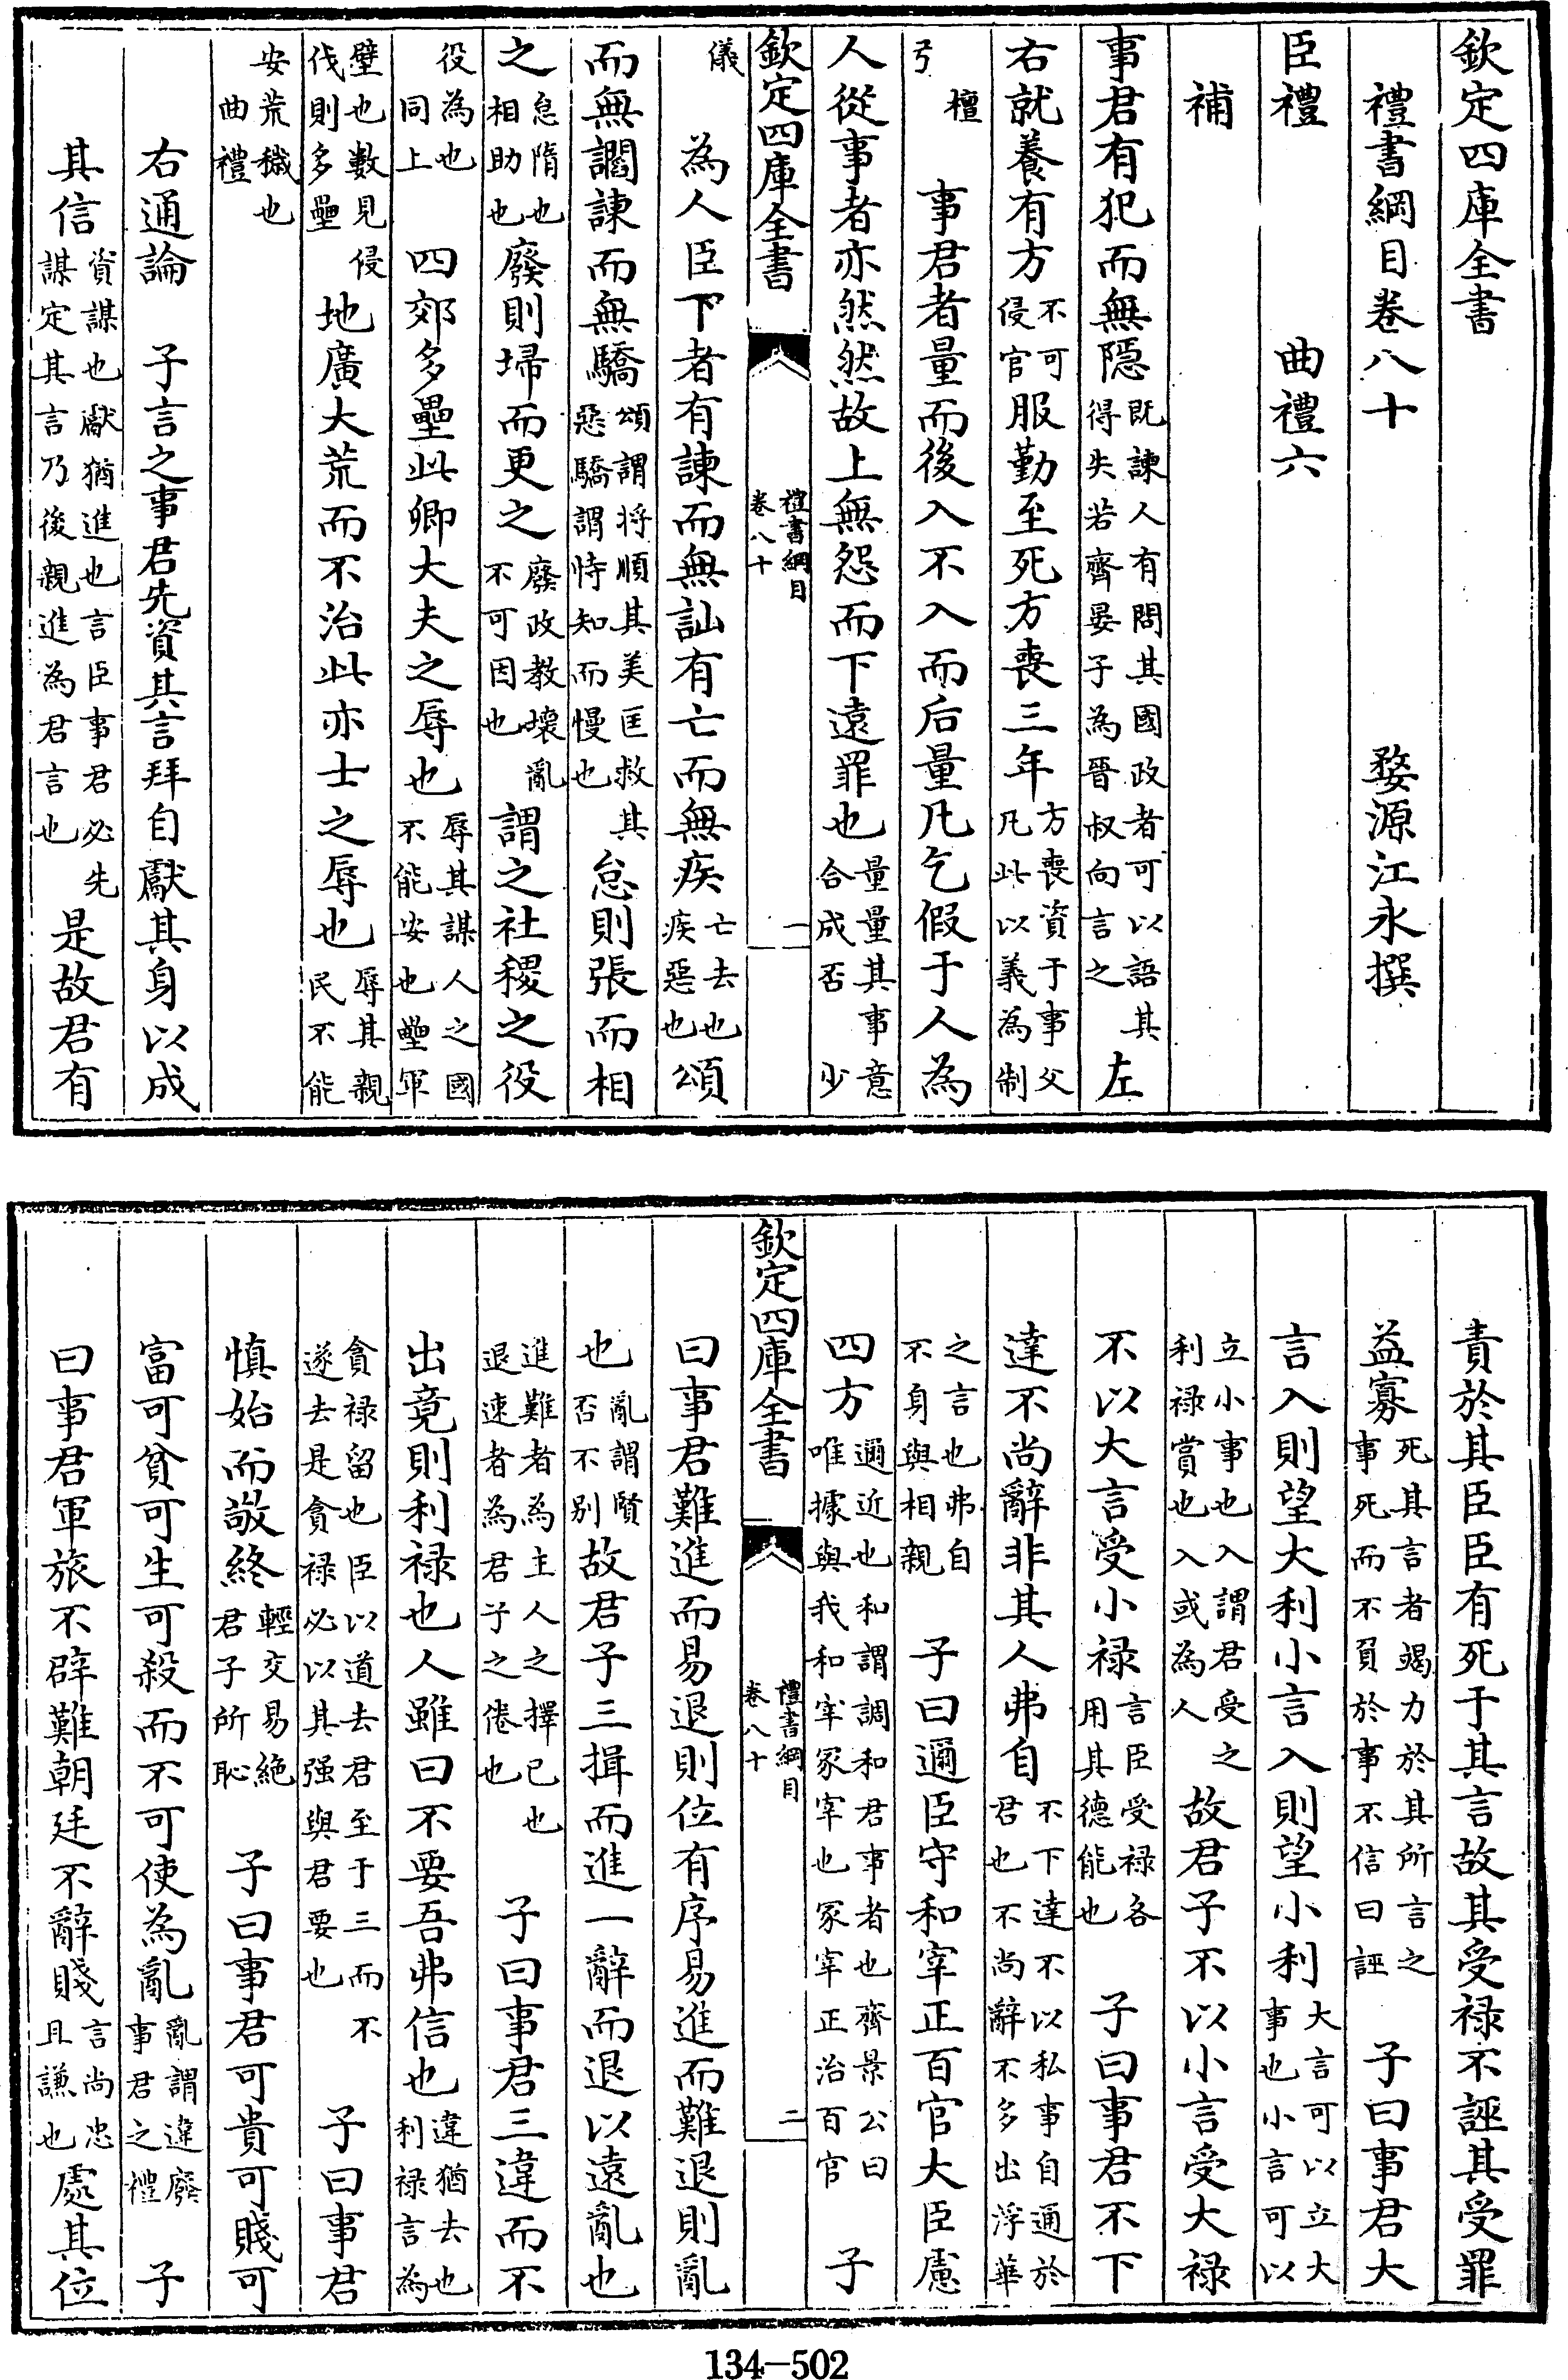 欽定四庫全書
禮書綱目卷八十
婺源江永撰
臣禮 曲禮六
補
事君有犯而無隱既諫人有問其國政者可以語其得失若齊晏子為晉叔向言之左
右就養有方不可侵官服勤至死方喪三年方喪資于事父凡此以義為制
檀弓 事君者量而後入不入而后量凡乞假于人為
人從事者亦然然故上無怨而下遠罪也量量其事意合成否少
欽定四庫全書 禮書綱目卷八十 一
儀 為人臣下者有諫而無訕有亡而無疾亡去也疾惡也頌
而無讇諫而無驕頌謂将順其美匡救其惡驕謂恃知而慢也怠則張而相
之怠隋也相助也廢則埽而更之廢政教壞亂不可因也謂之社稷之役
役為也同上 四郊多壘此卿大夫之辱也辱其謀人之國不能安也壘軍
壁也數見侵伐則多壘地廣大荒而不治此亦士之辱也辱其親民不能
安荒穢也曲禮
右通論 子言之事君先資其言拜自獻其身以成
其信資謀也獻猶進也言臣事君必先謀定其言乃後親進為君言也是故君有
責於其臣臣有死于其言故其受禄不誣其受罪
益寡死其言者竭力於其所言之事死而不負於事不信曰誣 子曰事君大
言入則望大利小言入則望小利大言可以立大事也小言可以
立小事也入謂君受之利禄賞也入或為人故君子不以小言受大禄
不以大言受小禄言臣受禄各用其德能也 子曰事君不下
達不尚辭非其人弗自不下達不以私事自通於君也不尚辭不多出浮華
之言也弗自不身與相親 子曰邇臣守和宰正百官大臣慮
四方邇近也和謂調和君事者也齊景公曰唯據與我和宰冢宰也冢宰正治百官 子
欽定四庫全書 禮書綱目卷八十 二
曰事君難進而易退則位有序易進而難退則亂
也亂謂賢否不别故君子三揖而進一辭而退以遠亂也
進難者為主人之擇已也退速者為君子之倦也 子曰事君三違而不
出竟則利禄也人雖曰不要吾弗信也違猶去也利禄言為
貪禄留也臣以道去君至于三而不遂去是貪禄必以其强與君要也 子曰事君
慎始而敬終輕交易絶君子所恥 子曰事君可貴可賤可
富可貧可生可殺而不可使為亂亂謂違廢事君之禮 子
曰事君軍旅不辟難朝廷不辭賤言尚忠且謙也處其位
134-502